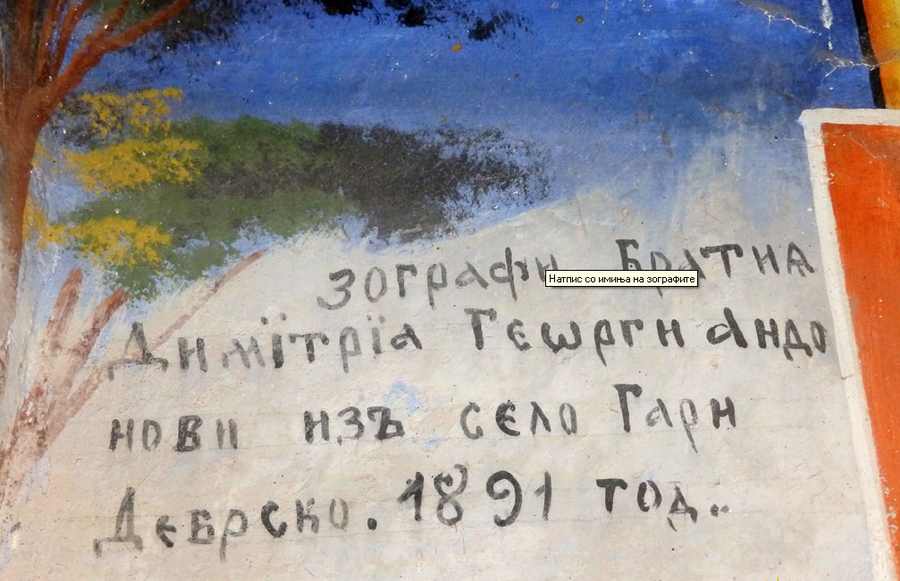 зографи Братиа
Натпис со имиња на зографите
Димїтрїа Геѡрги Андо
нови изъ село Гари
Дебрско. 1891 год..